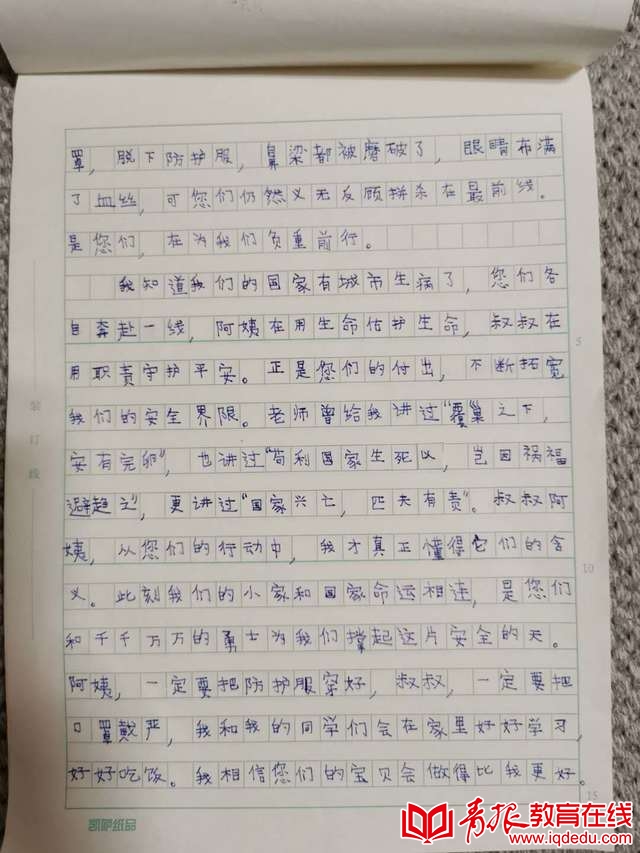 罩，脱下防护服，鼻梁都被磨破了，眼睛布满
了血丝，可您们仍然义无反顾拼杀在最前线。
是您们，在为我们负重前行。
我知道我们的国家有城市生病了，您们各
自奔赴一线，阿姨在用生命佑护生命，叔叔在
用职责守护平安。正是您们的付出，不断拓宽
我们的安全界限。老师曾给我讲过“覆巢之下，
安有完卵”，也讲过“苟利国家生死以，岂因祸福
避趋之”，更讲过“国家兴亡，匹夫有责”。叔叔阿
姨，从您们的行动中，我才真正懂得它们的含
义。此刻我们的小家和国家命运相连，是您们
和千千万万的勇士为我们撑起这片安全的天。
阿姨，一定要把防护服穿好，叔叔，一定要把
口罩戴严，我和我的同学们会在家里好好学习，
好好吃饭。我相信您们的宝贝会做得比我更好。
装订线
5
10
15
凯萨纸品
青报教育在线
www.iqdedu.com